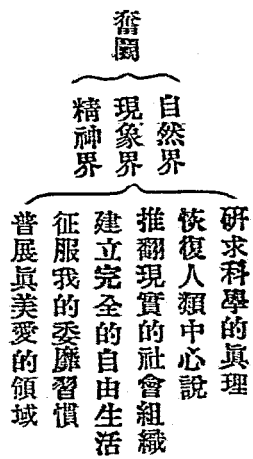 奮鬭
自然界
現象界
精神界
研求科學的眞理
恢復人類中心說
推翻現實的社會組織
建立完全的自由生活
征服我的委靡習慣
普展眞美愛的領域